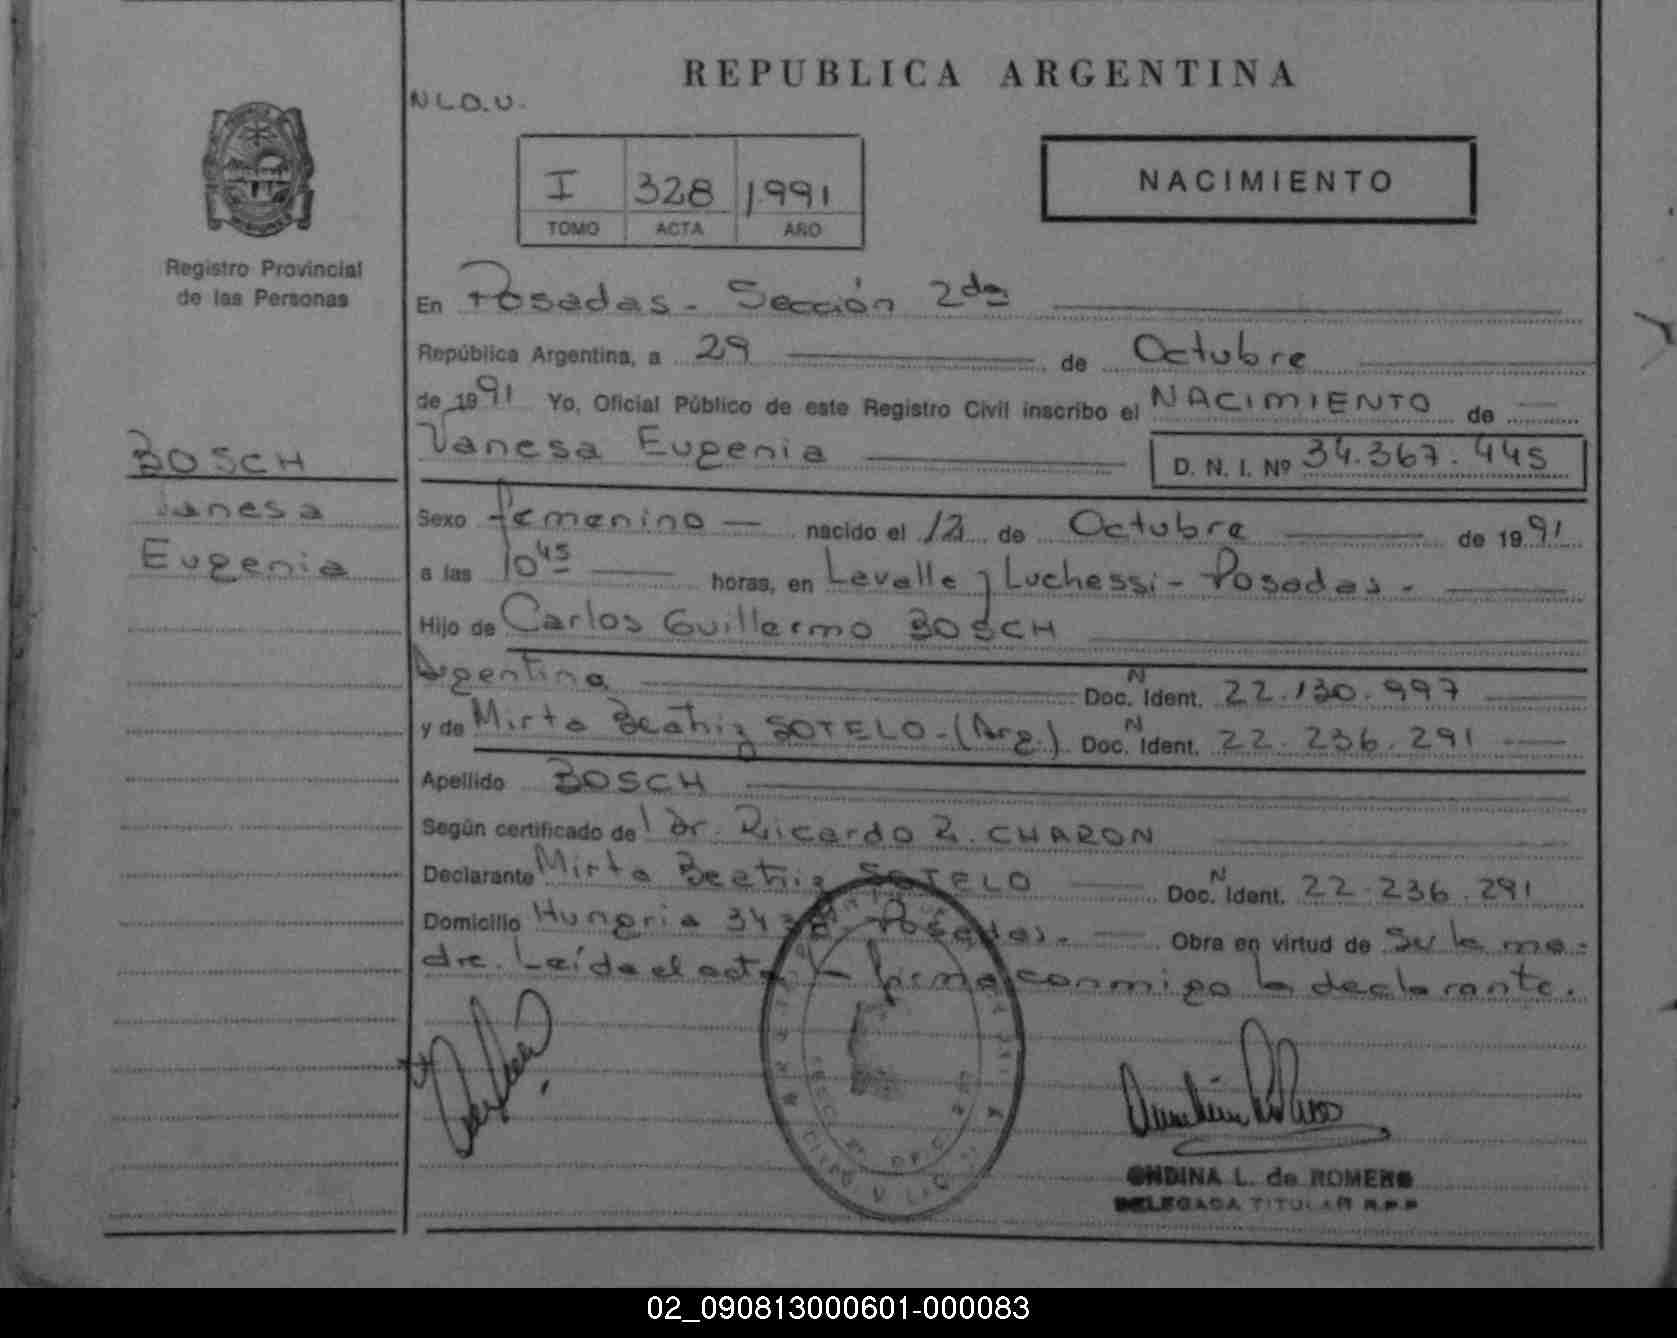 REPUBLICA ARGENTINA
N L O. U.
I 328 1991
TOMO ACTA AÑO
NACIMIENTO
Registro Provincial
de las Personas
En Posadas - Sección 2da
República Argentina, a 29 de Octubre
de 1991 Yo, Oficial Público de este Registro Civil inscribo el NACIMIENTO de
BOSCH
Vanesa
Eugenia
Vanesa Eugenia D. N. I. Nº 34.367.445
Sexo femenino nacido el 12 de Octubre de 1991
a las 10 45 horas, en Lavalle y Luchessi - Posadas -
Hijo de Carlos Guillermo BOSCH
Argentina Doc. N Ident. 22.130.997
y de Mirta Beatriz SOTELO - (Arg.) Doc. N Ident. 22.236.291
Apellido BOSCH
Según certificado de Dr. Ricardo R. CHARON
Declarante Mirta Beatriz SOTELO Doc. N Ident. 22.236.291
Domicilio Hungria Posadas. - Obra en virtud de Su la ma-
dre. Leída el acta la firma conmigo la declarante.
ONDINA L. de ROMERO
DELEGADA TITULAR R.P.P
02_090813000601-000083